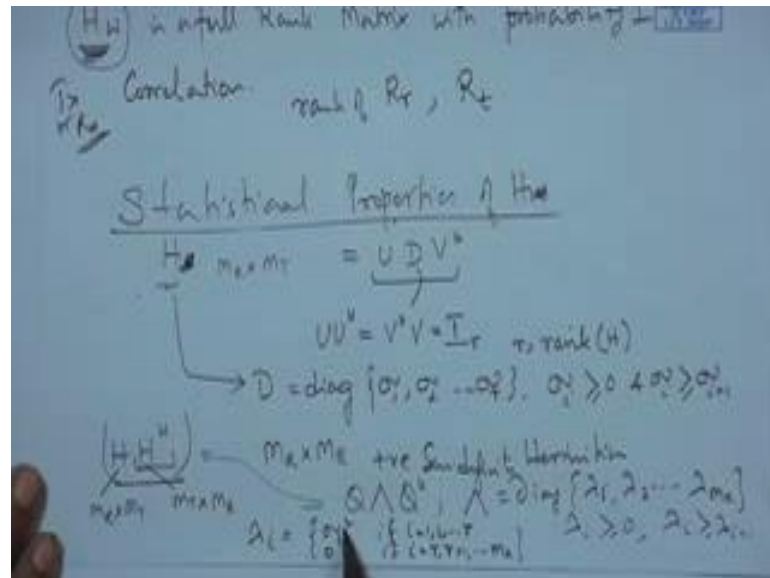 H_W is a full Rank Matrix with probability 1
Tx & Rx Correlation rank of R_r, R_t
Statistical Properties of H
H M_R×M_T = U D V^H
UU^H = V^H V = I_r r, rank(H)
D = diag {σ_1, σ_2 ... σ_r}. σ_i ≥ 0 & σ_i ≥ σ_{i+1}
(H H^H) = M_R×M_R +ve Semidefinite Hermitian
M_R×M_T M_T×M_R Q Λ Q^H, Λ = diag {λ_1, λ_2 ... λ_{M_R}}
λ_i = {σ_i^2 if i=1,2..r λ_i ≥ 0, λ_i ≥ λ_{i+1}
{0 if i=r+1, ... M_R}